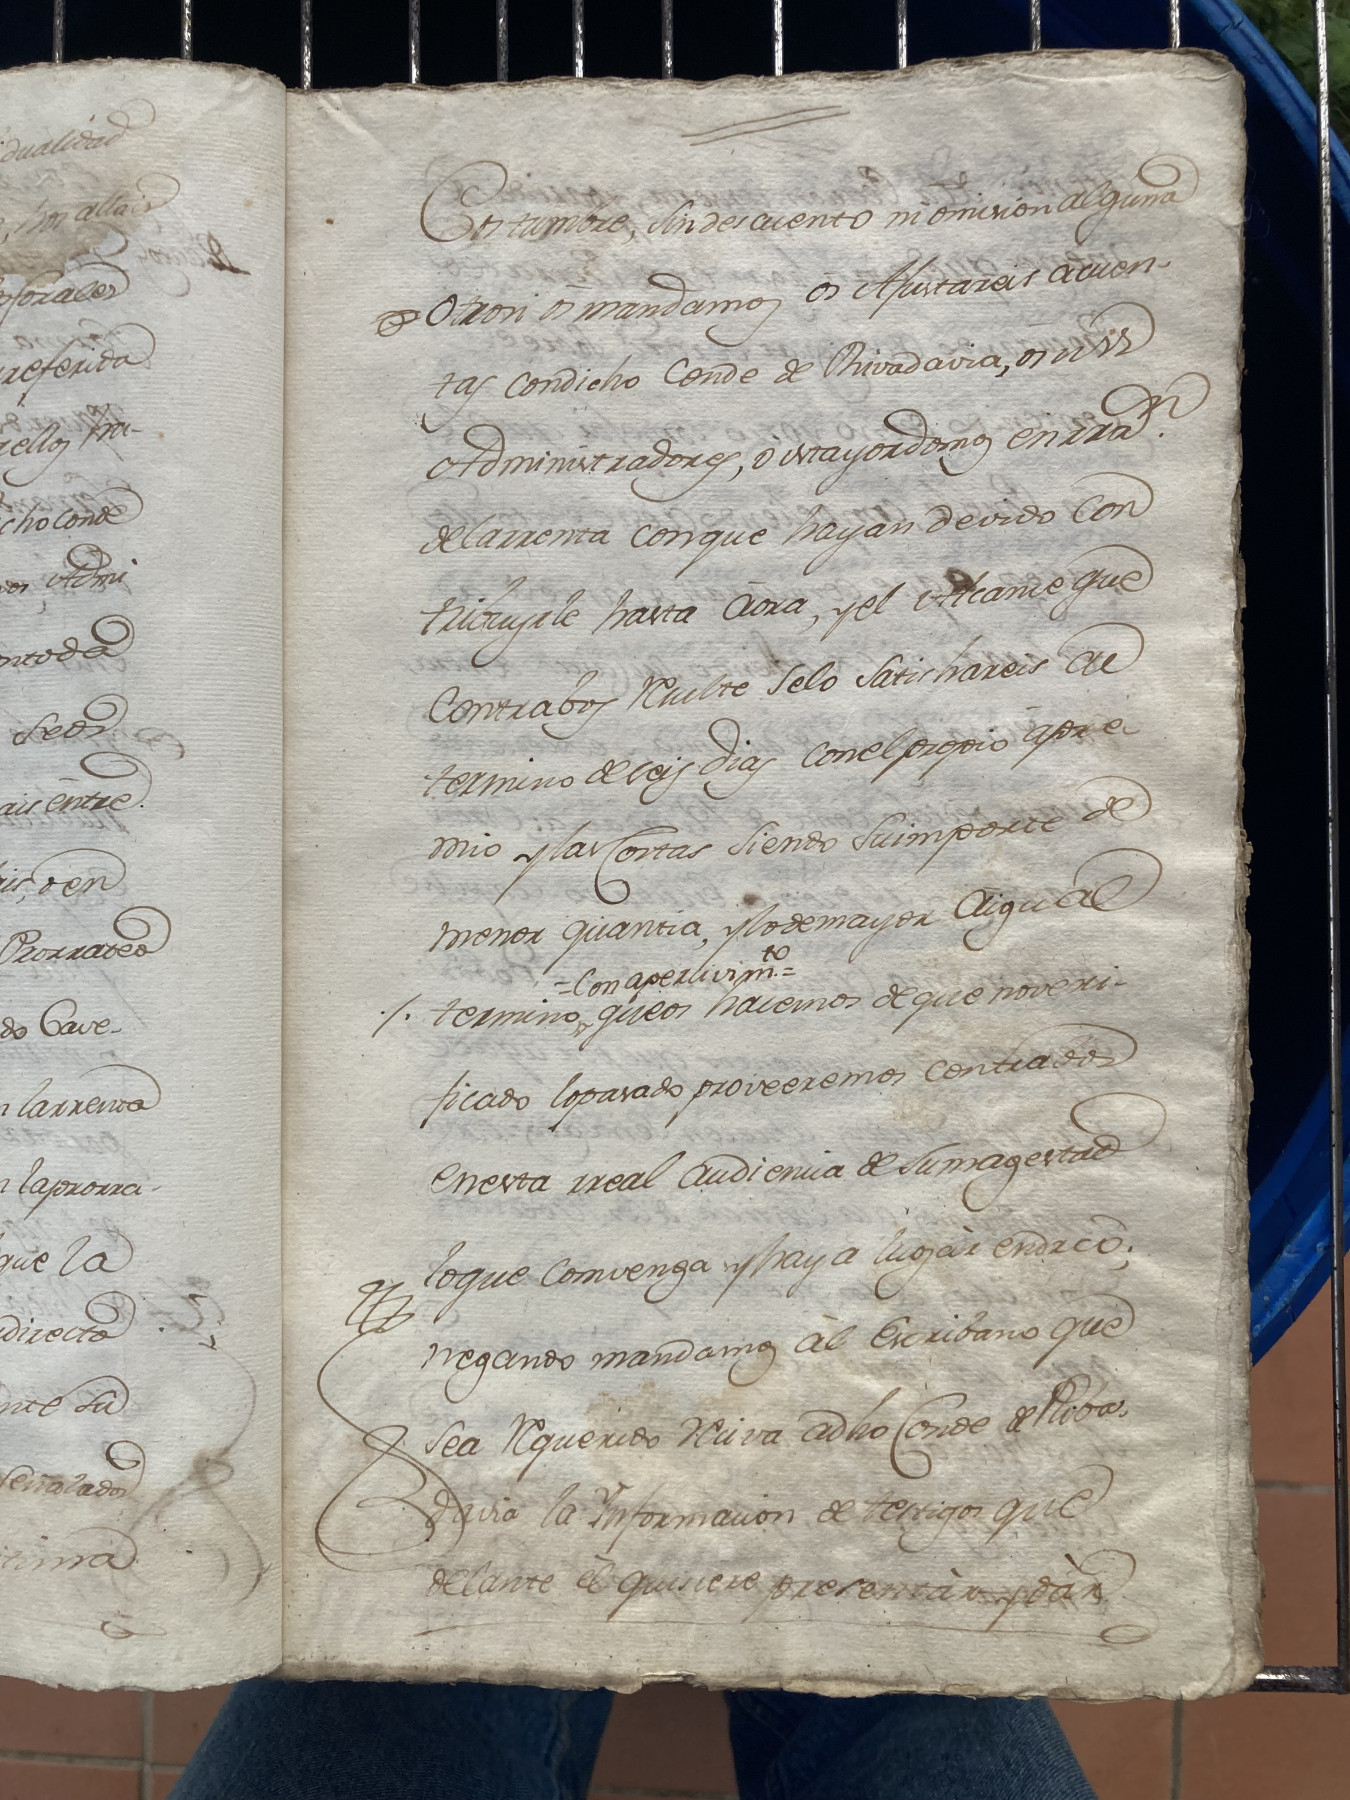 dualidad
, hos allais
forales
referida
rellos fru-
cho conde
os Admi
ntoda
Seos
ais entre
is, o en
Prorrateo
do Cave-
n larrenta
n laprorra-
que la
directo
nte su
señalados
tima
Costumbre, sin descuento ni omision alguna
Otrosi os mandamos os Ajustareis acuen-
tas con dicho Conde de Rivadavia, o sus
Administradores, o Mayordomos en rraz.n
de larrenta con que hayan devido con
tribuyrle hasta aora, y el Alcance que
contrabos Resulte selo satisfhareis al
termino de seis dias con el propio apre
mio y las Costas siendo su importe de
menor quantia, y lo demayor a igual
=con apercivim.to=
/. termino, que os hacemos de que no veri-
ficado lo pasado proveeremos contrabos
en esta rreal audiencia de Sumagestad
lo que convenga y haya lugar en drcō;
negando mandamos al Escribano que
sea Requerido Reciva a dho Conde de Riba-
davia la Ynformacion de testigos que
delante el quisiere presentar y dar